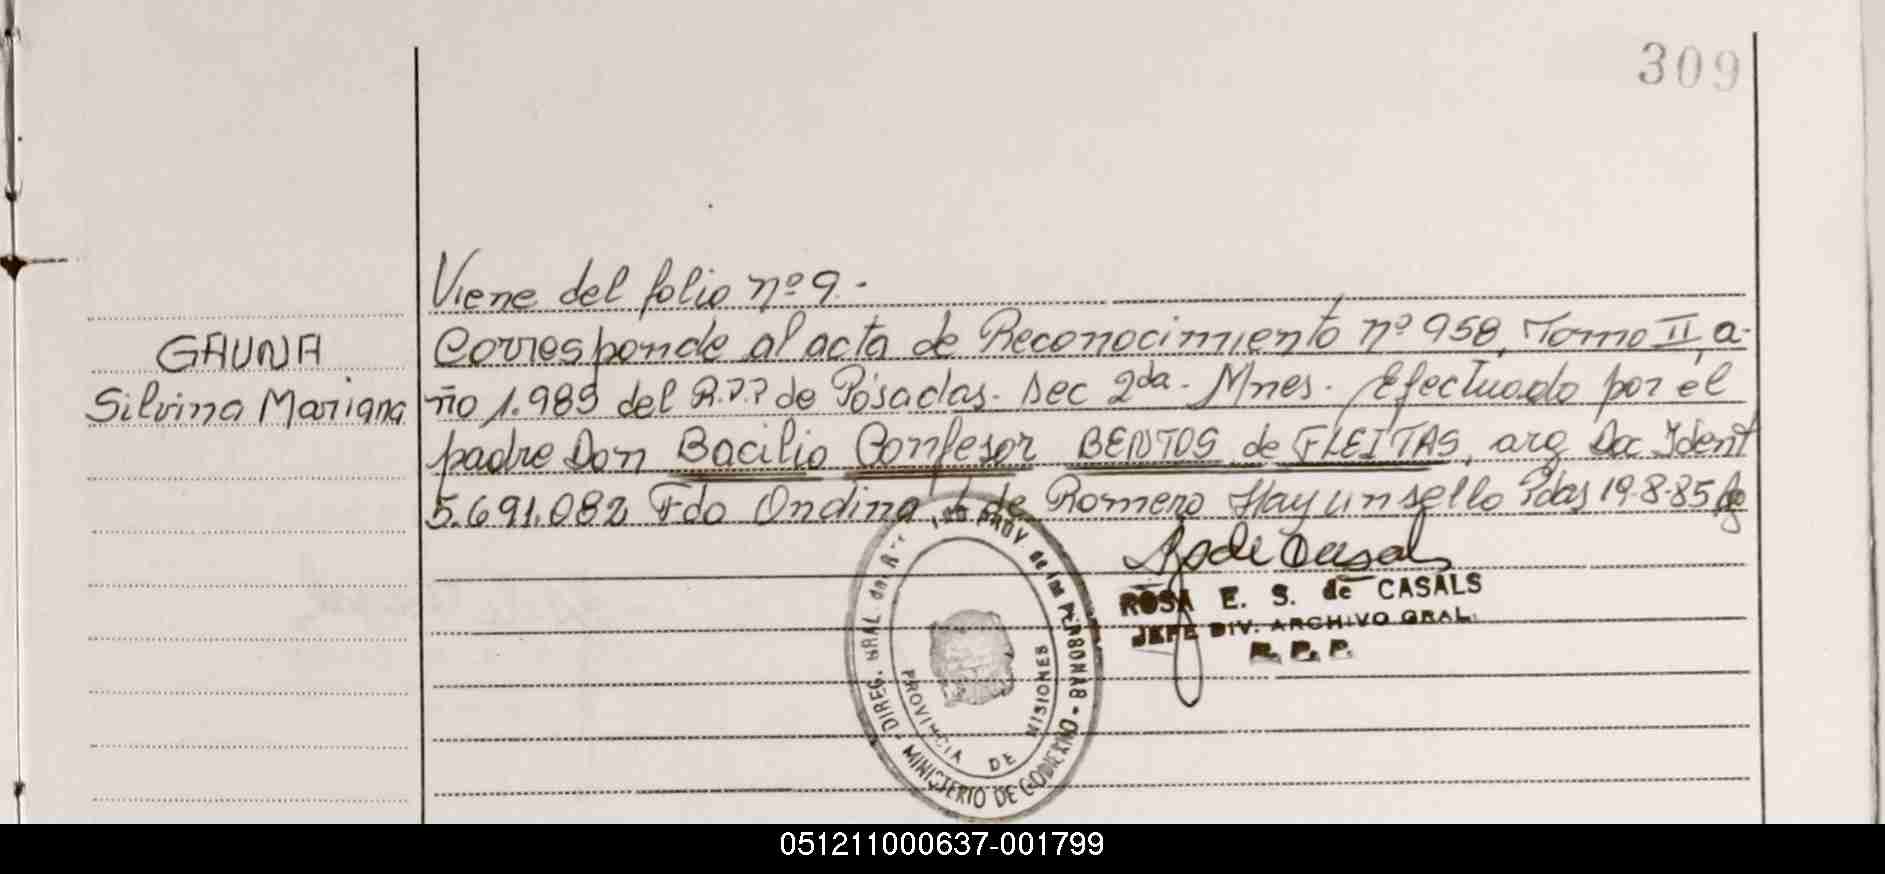 309
Viene del folio nº 9.-
GAUNA
Silvina Mariana
Corresponde al acta de Reconocimiento nº 958, Tomo II, a-
ño 1.985 del R.P.P de Posadas. Sec 2da. Mnes. Efectuado por el
padre Don Bacilio Confesor BENTOS de FLEITAS, arg Doc Ident
5.691.082 Fdo Ondina de Romero Hay un sello Pdas 19-8-85
ROSA E. S. de CASALS
JEFE DIV. ARCHIVO GRAL.
R. P. P.
DIREC. GRAL. del PROV. de las PERSONAS - MINISTERIO DE GOBIERNO -
PROVINCIA DE MISIONES
051211000637-001799